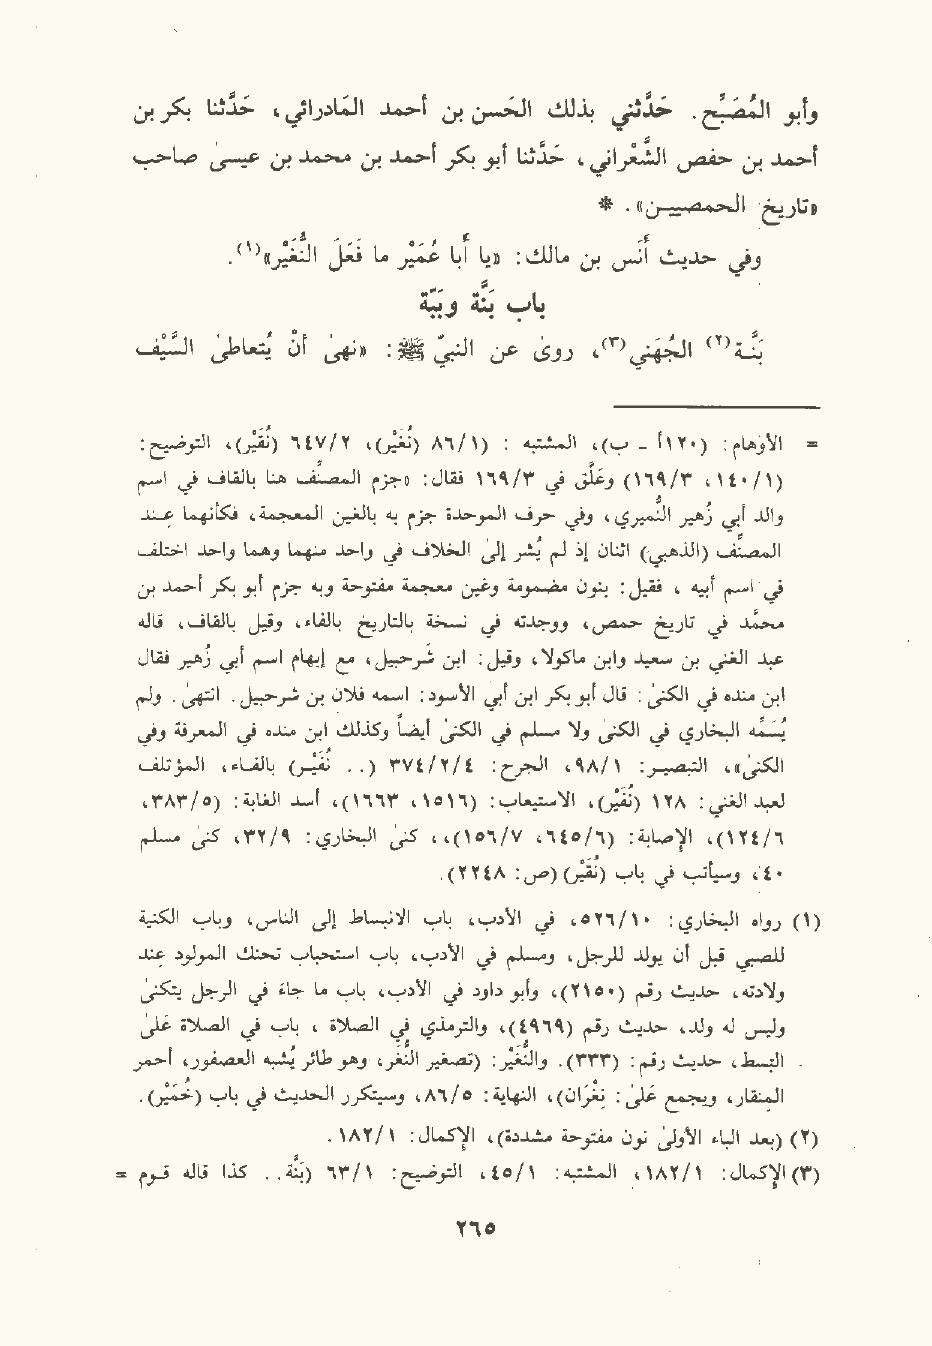 وأبو المُصَبِّح. حَدَّثني بذلك الحَسن بن أحمد المَادرائي، حَدَّثنا بكر بن
أحمد بن حفص الشَّعْراني، حَدَّثنا أبو بكر أحمد بن محمد بن عيسىٰ صاحب
«تاريخ الحمصيين». *
وفي حديث أَنَس بن مالك: «يا أَبا عُمَيْر ما فَعَلَ النُّغَيْر»(١).
باب بَنَّة وبَبَّة
بَنَّة(٢) الجُهَني(٣)، روىٰ عن النبيّ ﷺ: «نهىٰ أنْ يُتعاطىٰ السَّيْف
= الأوهام: (١٢٠أ ــ ب)، المشتبه : (٨٦/١ (نُغَيْر)، ٦٤٧/٢ (نُقَيْر)، التوضيح:
(١٤٠/١، ١٦٩/٣) وعلَّق في ١٦٩/٣ فقال: «جزم المصنِّف هنا بالقاف في اسم
والد أبي زُهير النُّميري، وفي حرف الموحدة جزم به بالغين المعجمة، فكأنهما عند
المصنِّف (الذهبي) اثنان إذ لم يُشر إلىٰ الخلاف في واحد منهما وهما واحد اختلف
في اسم أبيه ، فقيل: بنون مضمومة وغين معجمة مفتوحة وبه جزم أبو بكر أحمد بن
محمَّد في تاريخ حمص، ووجدته في نسخة بالتاريخ بالفاء، وقيل بالقاف، قاله
عبد الغني بن سعيد وابن ماكولا، وقيل: ابن شُرحبيل، مع إبهام اسم أبي زُهير فقال
ابن منده في الكنىٰ: قال أبو بكر ابن أبي الأسود: اسمه فلان بن شرحبيل. انتهىٰ. ولم
يُسَمِّه البخاري في الكنىٰ ولا مسلم في الكنىٰ أيضاً وكذلك ابن منده في المعرفة وفي
الكنىٰ»، التبصير: ٩٨/١، الجرح: ٣٧٤/٢/٤ (.. نُفَيْر) بالفاء، المؤتلف
لعبد الغني: ١٢٨ (نُفَيْر)، الاستيعاب: (١٥١٦، ١٦٦٣)، أسد الغابة: (٣٨٣/٥،
١٢٤/٦)، الإصابة: (٦٤٥/٦، ١٥٦/٧)،، كنىٰ البخاري: ٣٢/٩، كنىٰ مسلم
٤٠، وسيأتي في باب (نُفَيْر) (ص: ٢٢٤٨).
(١) رواه البخاري: ٥٢٦/١٠، في الأدب، باب الانبساط إلىٰ الناس، وباب الكنية
للصبي قبل أن يولد للرجل، ومسلم في الأدب، باب استحباب تحنك المولود عند
ولادته، حديث رقم (٢١٥٠)، وأبو داود في الأدب، باب ما جاء في الرجل يتكنىٰ
وليس له ولد، حديث رقم (٤٩٦٩)، والترمذي في الصلاة ، باب في الصلاة علىٰ
البسط، حديث رقم: (٣٣٣). والنُّغَيْر: (تصغير النُّغَر، وهو طائر يُشبه العصفور، أحمر
المنقار، ويجمع علىٰ: نِغْرَان)، النهاية: ٨٦/٥، وسيتكرر الحديث في باب (خُمَيْر).
(٢) (بعد الباء الأولىٰ نون مفتوحة مشددة)، الإكمال: ١٨٢/١.
(٣) الإكمال: ١٨٢/١، المشتبه: ٤٥/١، التوضيح: ٦٣/١ (بَنَّة.. كذا قاله قوم =
٢٦٥